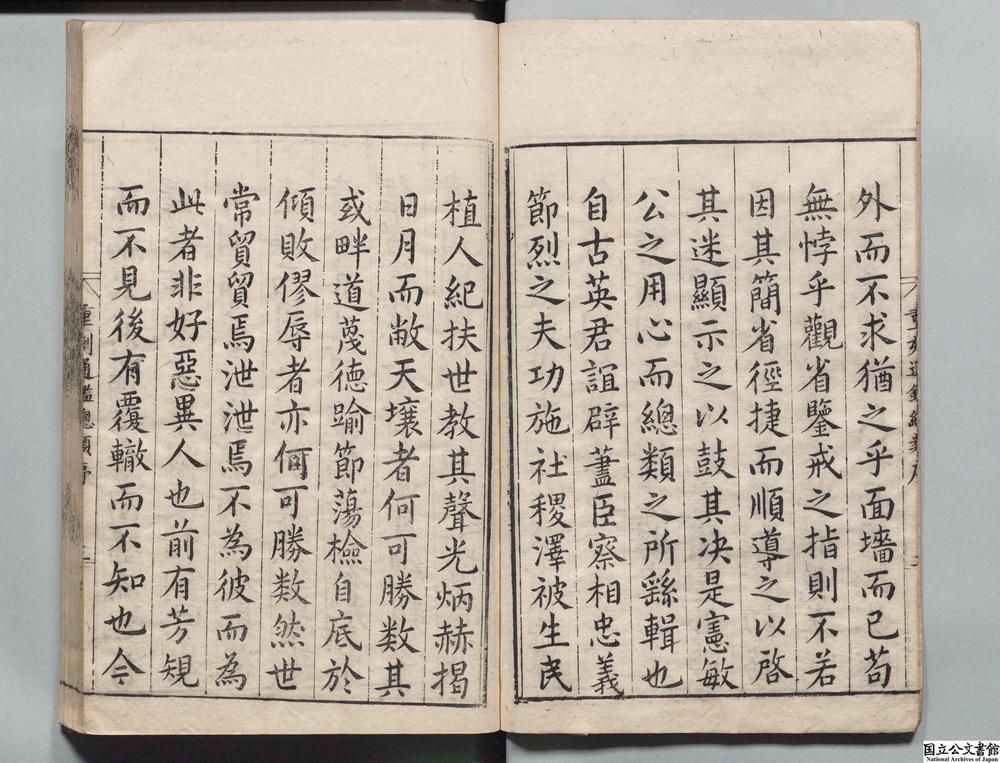 外而不求猶之乎面墻而已苟
無悖乎觀省鑒戒之指則不若
因其簡省徑捷而順導之以啓
其迷顯示之以鼓其决是憲敏
公之用心而總類之所繇輯也
自古英君誼辟藎臣察相忠義
節烈之夫功施社稷澤被生民
植人紀扶世教其聲光炳赫揭
日月而敝天壤者何可勝数其
或畔道蔑德踰節蕩檢自底於
傾敗僇辱者亦何可勝数然世
常貿貿焉泄泄焉不為彼而為
此者非好惡異人也前有芳規
而不見後有覆轍而不知也今
重刻通鑑總類序
国立公文書館
National Archives of Japan